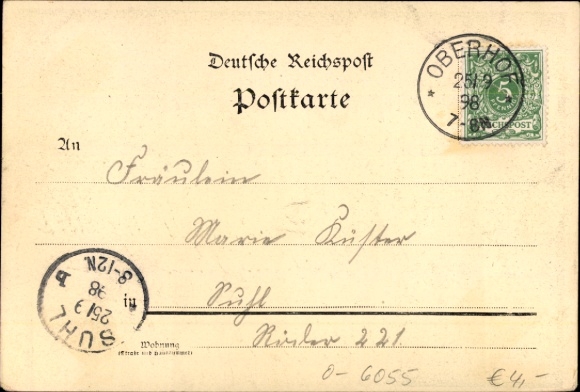 Deutsche Reichspost
Postkarte
OBERHOF
25/9
98
7-8N
5
REICHSPOST
An
Fräulein
Marie Küster
in Suhl
Wohnung
(Straße und Hausnummer)
221
SUHL
25/9
98
8-12N.
o- 6055
€4,-